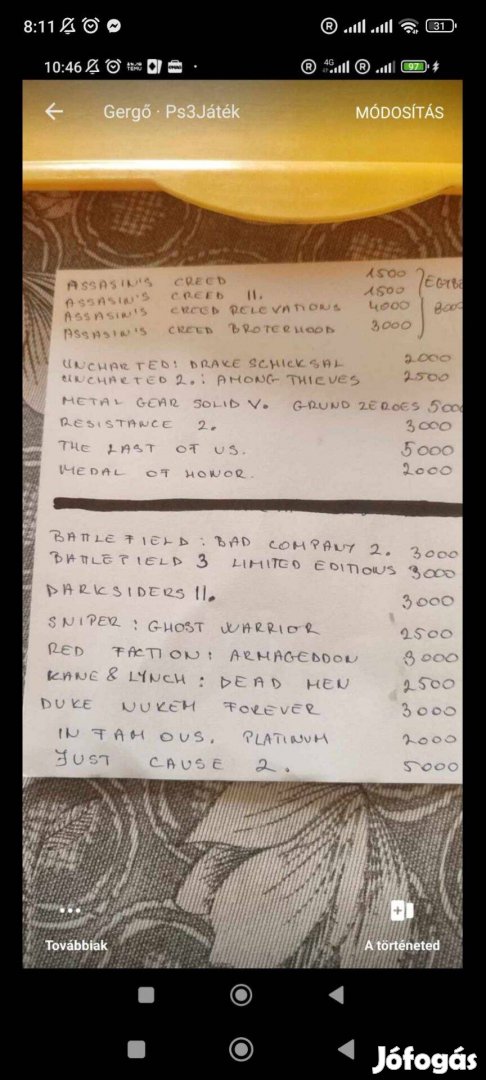 8:11
31
10:46
4G
97
Gergő · Ps3Játék
MÓDOSÍTÁS
ASSASIN'S CREED 1500
ASSASIN'S CREED II. 1500
ASSASIN'S CREED RELEVATIONS 4000
ASSASIN'S CREED BROTERHOOD 3000
UNCHARTED: DRAKE SCHICKSAL 2000
UNCHARTED 2.: AMONG THIEVES 2500
METAL GEAR SOLID V. GRUND ZEROES 5000
RESISTANCE 2. 3000
THE LAST OF US. 5000
MEDAL OF HONOR. 2000
BATTLEFIELD: BAD COMPANY 2. 3000
BATTLEFIELD 3 LIMITED EDITIONS 3000
DARKSIDERS II. 3000
SNIPER: GHOST WARRIOR 2500
RED FACTION: ARMAGEDDON 3000
KANE & LYNCH: DEAD MEN 2500
DUKE NUKEM FOREVER 3000
IN FAMOUS. PLATINUM 2000
JUST CAUSE 2. 5000
Továbbiak
A történeted
Jófogás